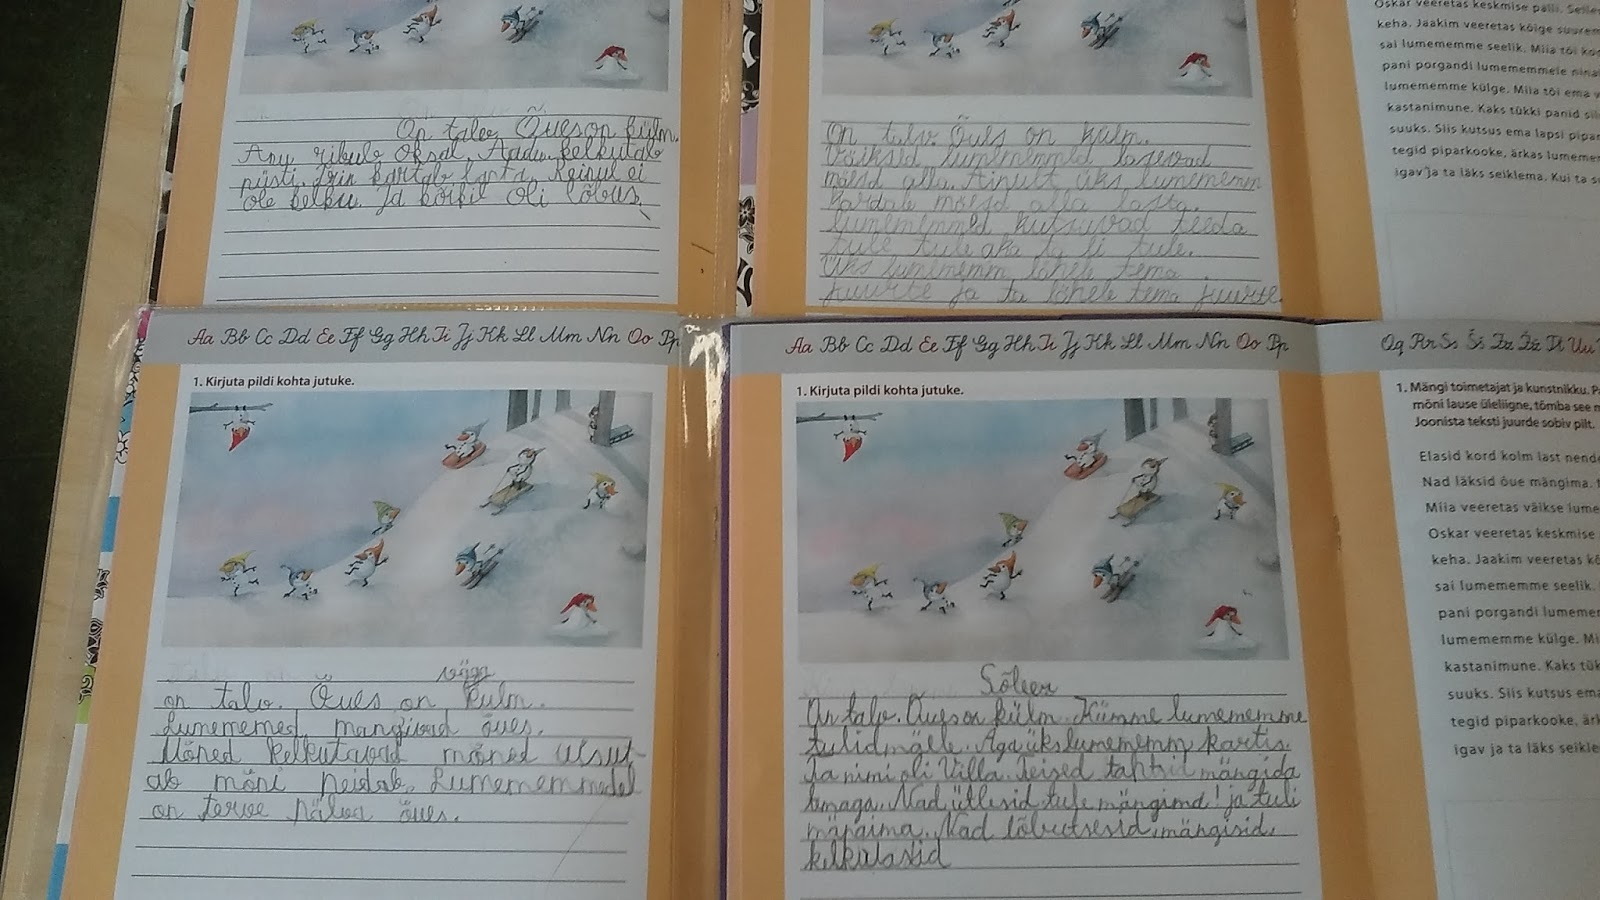 On talv. Õues on külm.
Anu ripub oksal. Aadu kelkutab
püsti. Iris kardab lasta. Reinul ei
ole kelku. Ja kõikil oli lõbus.
On talv. Õues on külm.
Väiksid lummemmed lasevad
mäest alla. Ainult üks lumememm
kardab mäest alla lasta.
Lumememmed kutsuvad teda
tule tule aga ta ei tule.
Üks lumememm lähele tema
juurte ja ta lähele tema juurte.
Oskar veeretas keskmise palli.
keha. Jaakim veeretas kõige
sai lumememme seelik. Miia tõi
pani porgandi lumememmele
lumememme külge. Miia tõi ema
kastanimune. Kaks tükki panid
suuks. Siis kutsus ema lapsi
tegid piparkooke, ärkas
igav ja ta läks seiklema. Kui ta
Aa Bb Cc Dd Ee Ff Gg Hh Ii Jj Kk Ll Mm Nn Oo Pp
1. Kirjuta pildi kohta jutuke.
väga
on talv. Õues on külm.
Lumememed mangivad õues.
Mõned kelkutavad mõned uisut-
ab mõni peidab. Lumememmedel
on terve pälva õues.
Aa Bb Cc Dd Ee Ff Gg Hh Ii Jj Kk Ll Mm Nn Oo Pp
1. Kirjuta pildi kohta jutuke.
On talv. Õues on külm. Kümme lumememme
tulid mäele. Aga üks lumememm kartis.
Ta nimi oli Villa. Teised tahtsid mängida
temaga. Nad ütlesid tule mängima! ja tuli
mängima. Nad lõbutsesid, mängisid,
kelkutasid
Qq Rr Ss Šš Zz Žž Tt Uu
1. Mängi toimetajat ja kunstnikku.
mõni lause üleliigne, tõmba see
Joonista teksti juurde sobiv pilt.
Elasid kord kolm last
Nad läksid õue mängima.
Miia veeretas väikse
Oskar veeretas keskmise
keha. Jaakim veeretas
sai lumememme seelik.
pani porgandi
lumememme külge.
kastanimune. Kaks
suuks. Siis kutsus
tegid piparkooke,
igav ja ta läks